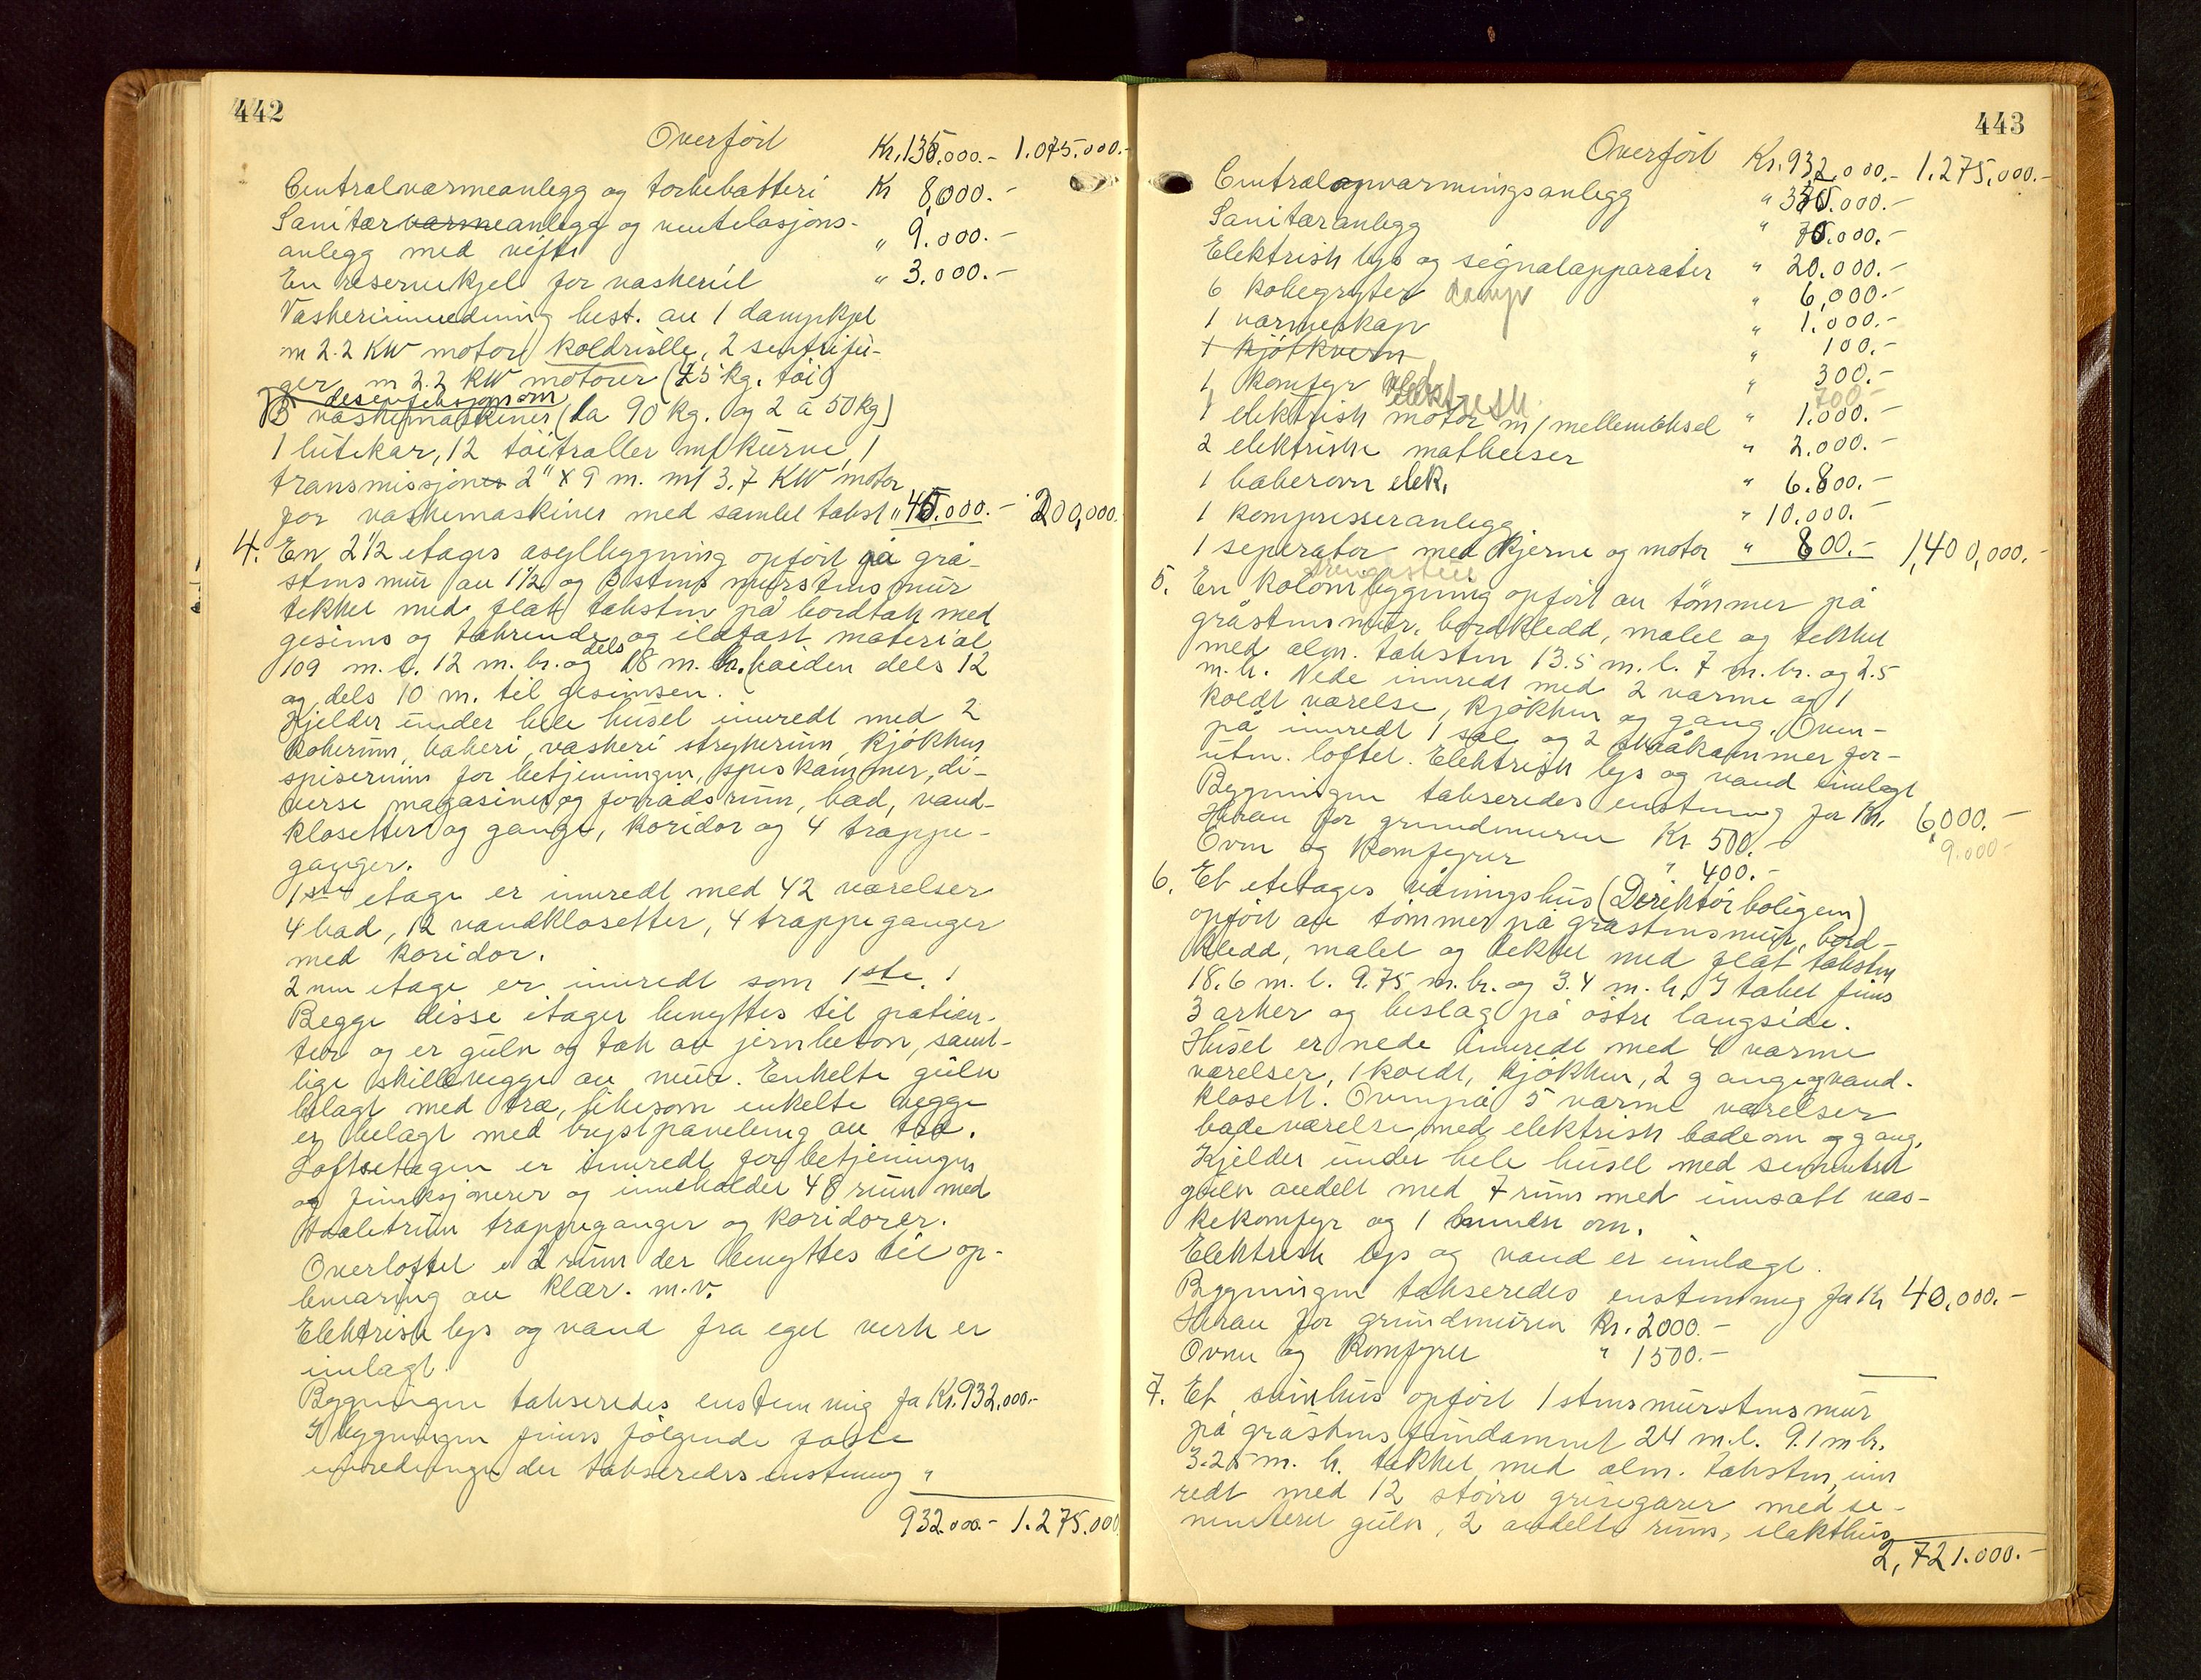 442
Overført Kr. 135,000.- 1.075,000.-
Centralvarmeanlegg og torkebatteri Kr 8,000.-
Sanitærvarmeanlegg og ventelasjons-
anlegg med vifte " 9.000.-
En reservekjel for vaskeriet " 3.000.-
Vaskeriinnredning best. av 1 dampkjel
m 2.2 KW motor, koldrulle, 2 sentrifu-
ger m 2.2 KW motorer (25 kg. tøi)
desenfeksjonsovn
3 vaskemaskiner (1a 90 kg. og 2 a 50 kg)
1 lutekar, 12 tøitraller m/ kurve, 1
transmissjon 2" x 9 m. m/ 3.7 KW motor
for vaskemaskiner med samlet takst " 45.000.- 200,000.
4. En 2 1/2 etages asylbygning opført på grå-
stens mur av 1 1/2 og 2 stens murstens mur
tekket med flat taksten på bordtak med
gesims og takrende og ildfast material
109 m. l. 12 m. br. og dels 18 m. br. høiden dels 12
og dels 10 m. til gesimsen.
Kjelder under hele huset innredt med 2
kokerum, bakeri, vaskeri strykerum, kjøkken
spiserum for betjeningen, spiskammer, di-
verse magasiner og forrådsrum, bad, vand-
klosetter og gange, koridor og 4 trappe-
ganger.
1ste etage er innredt med 42 værelser
4 bad, 12 vandklosetter, 4 trappeganger
med koridor.
2nen etage er innredt som 1ste.
Begge disse etager benyttes til patien-
ter og er gulv og tak av jernbeton, samt-
lige skillevegge av mur. Enkelte gulv
belagt med træ, likesom enkelte vegge
er belagt med brystpaneling av træ.
Loftsetagen er innredt for betjeningen
og funksjonerer og inneholder 48 rum med
toaletrum trappeganger og koridorer.
Overloftet er 2 rum der benyttes til op-
bevaring av klær. m.v.
Elektrisk lys og vand fra eget verk er
innlagt.
Bygningen takseredes enstemmig for Kr. 932,000.-
I bygningen finnes følgende faste
innredninger der takseredes enstemmig "
932.000.- 1.275.000
443
Overført Kr. 932,000.- 1.275,000.-
Centralopvarmingsanlegg " 350.000.-
Sanitæranlegg " 75.000.-
Elektrisk lys og signalapparater " 20.000.-
6 kokegryter damp " 6,000.-
1 varmeskap " 1.000.-
1 kjøtkvern " 100.-
1 komfyr elektrisk " 300.-
700.-
1 elektrisk motor m/ mellemaksel " 1.000.-
2 elektriske matheiser " 2.000.-
1 bakerovn elek. " 6.800.-
1 kompressoranlegg " 10.000.-
1 seperator med kjerne og motor " 800.- 1,400,000.-
drengestue
5. En kolonibygning opført av tømmer på
gråstensmur, bordkledd, malet og tekket
med alm. taksten 13.5 m. l. 7 m. br. og 2.5
m. h. Nede innredt med 2 varme og 1
koldt værelse, kjøkken og gang. Oven-
på innredt 1 sal og 2 småkammer for-
uten. loftet. Elektrisk lys og vand innlagt
Bygningen takseredes enstemmig for Kr. 6,000.-
Herav for grundmuren Kr 500.- 9.000-
Ovn og komfyrer " 400.-
6. Et etetages våningshus (Derektørboligen)
opført av tømmer på gråstensmur, bord-
kledd, malet og tekket med flat taksten
18.6 m. l. 9.75 m. br. og 3.4 m. h. I taket finns
3 arker og beslag på østre langside.
Huset er nede innredt med 4 varme
værelser, 1 koldt, kjøkken, 2 gange og vand-
klosett. Ovenpå 5 varme værelser
badeværelse med elektrisk badeovn og gang.
Kjelder under hele huset med sementert
gulv avdelt med 7 rum med innsatt vas-
kekomfyr og 1 bunden ovn.
Elektrisk lys og vand er innlagt.
Bygningen takseredes enstemmig for Kr 40,000.-
Herav for grundmuren Kr. 2000.-
Ovner og komfyrer " 1500.-
7. Et svinhus opført 1 stens murstens mur
på gråstens fundament 24 m. l. 9.1 m br.
3.25 m. h. tekket med alm. taksten, inn
redt med 12 større grisegarer med se-
menteret gulv, 2 avdelte rum, slakthus
2,721.000.-